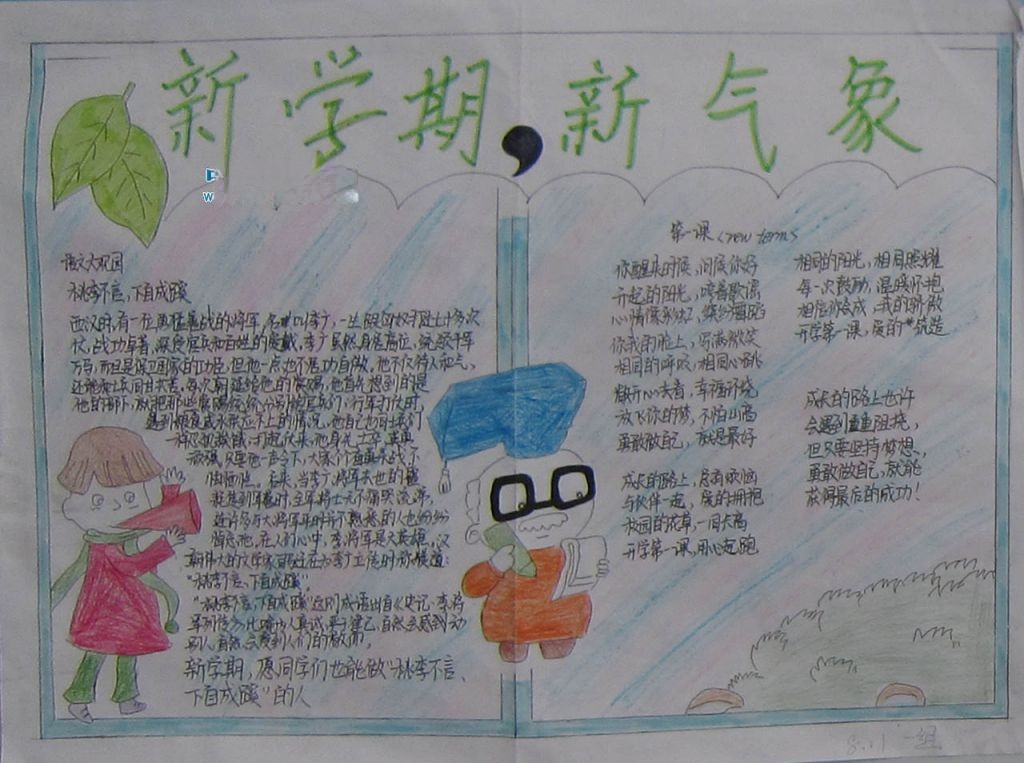 新学期,新气象
语文大观园
桃李不言,下自成蹊
西汉时,有一位勇猛善战的将军,名叫李广,一生跟匈奴打过七十多次
仗,战功卓著,深受官兵和百姓的爱戴。李广虽然身居高位,统领千军
万马,而且是保卫国家的功臣,但他一点也不居功自傲。他不仅待人和气,
还能和士兵同甘共苦。每次朝廷给他的赏赐,他首先想到的是
他的部下,就把那些赏赐统统分给官兵们;行军打仗时,
遇到粮食或水供应不上的情况,他自己也同士兵们
一样忍饥挨饿;打起仗来,他身先士卒,英勇
顽强,只要他一声令下,大家个个奋勇杀敌,不
怕牺牲。后来,当李广将军去世的噩
耗传到军营时,全军将士无不痛哭流涕,
连许多与大将军平时并不熟悉的人也纷纷
悼念他。在人们心中,李将军是大英雄。汉
朝伟大的文学家司马迁在为李广立传时称赞道:
"桃李不言,下自成蹊"
"桃李不言,下自成蹊"这则成语出自《史记·李将
军列传》,比喻为人真诚,严于律己,自然会感动
别人,自然会受到人们的敬仰。
新学期,愿同学们也能做"桃李不言、
下自成蹊"的人
第一课<new term>
你醒来的时候,问候你好
升起的阳光,哼着歌谣
心情缤纷
你我的脸上,写满微笑
相同的呼吸,相同心跳
敞开心去看,幸福环绕
放飞你的梦,不怕山高
勇敢做自己,就是最好
成长的路上,总有烦恼
与伙伴一起,爱的拥抱
校园的花草,一同长高
开学第一课,用心起跑
相同的阳光,相同照耀
每一次鼓励,温暖怀抱
相信你会成,我的骄傲
开学第一课,爱的
成长的路上也许
会遇到重重阻挠,
但只要坚持梦想,
勇敢做自己,就能
获得最后的成功!
8.01 一组